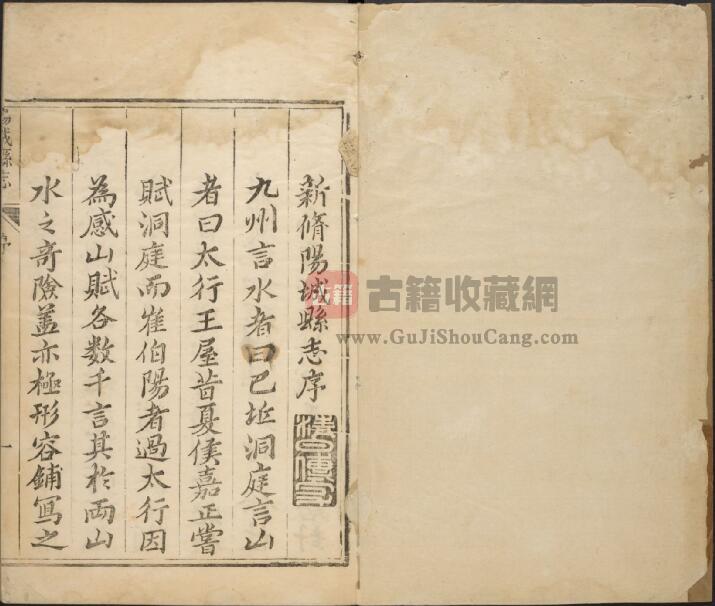 新脩陽城縣志序
九州言水者曰巴丘洞庭言山
者曰太行王屋昔夏侯嘉正嘗
賦洞庭而崔伯陽者過太行因
為感山賦各數千言其於兩山
水之奇險蓋亦極形容鋪寫之
陽城縣志
序
一
古籍
古籍收藏網
www.GuJiShouCang.com